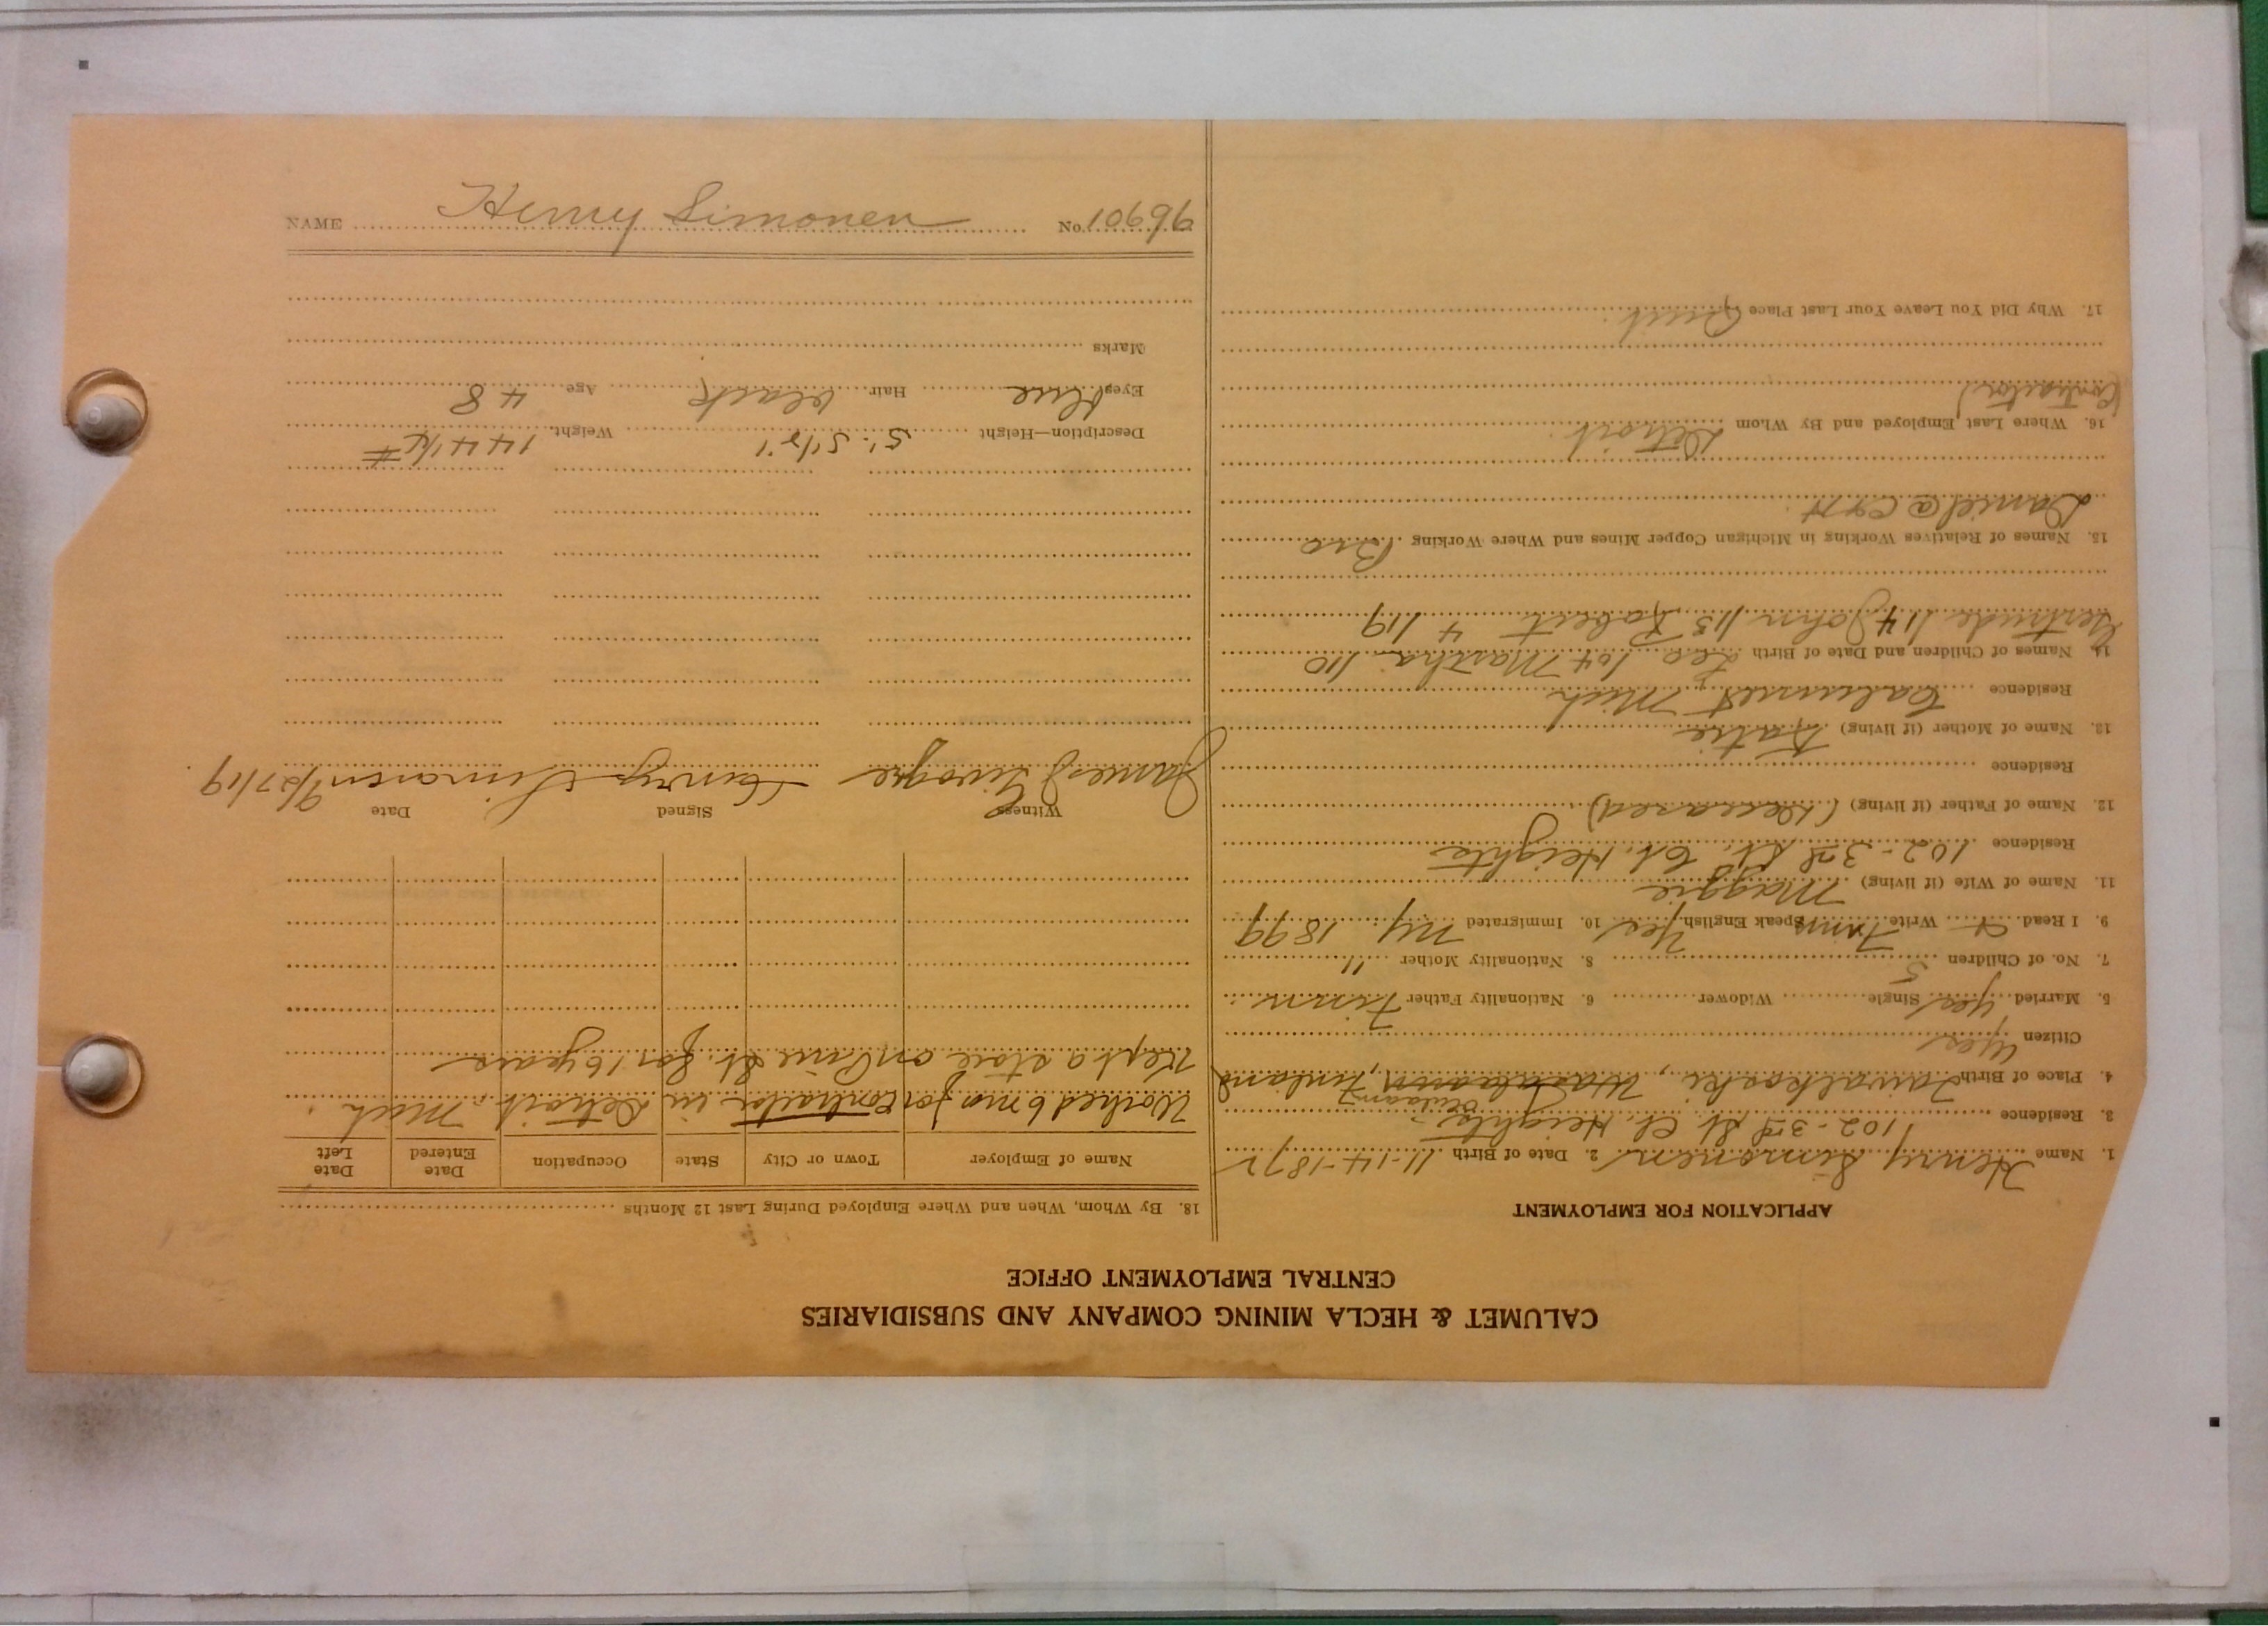 CALUMET & HECLA MINING COMPANY AND SUBSIDIARIES
CENTRAL EMPLOYMENT OFFICE
APPLICATION FOR EMPLOYMENT
1. Name Henry Simonen 2. Date of Birth 11-14-1872
3. Residence 102-3rd St. Cl. Heights.
4. Place of Birth Taivalkoski, Finland
Citizen Yes
5. Married Yes Single Widower 6. Nationality Father Finn
7. No. of Children 5 8. Nationality Mother "
9. I Read & Write Finn Speak English Yes 10. Immigrated NY. 1899
11. Name of Wife (if living) Maggie
Residence 102-3rd St. Cl. Heights
12. Name of Father (if living) (Deceased)
Residence
13. Name of Mother (if living) Katie
Residence Calumet Mich
14. Names of Children and Date of Birth Leo 104 Martha 110
Gertrude 114 John 115 Robert 4/19
15. Names of Relatives Working in Michigan Copper Mines and Where Working Bro
Daniel @ C&H.
16. Where Last Employed and By Whom Detroit.
Contractor)
17. Why Did You Leave Your Last Place Quit.
18. By Whom, When and Where Employed During Last 12 Months
Name of Employer Town or City State Occupation Date Entered Date Left
Worked 6 mos for contractor in Detroit, Mich.
Kept a store on Pine St. for 16 years
Witness Signed Date
James Henry Simonen 9/27/19.
Description—Height 5'. 5 1/2" Weight 144 1/2 #
Eyes blue Hair black Age 48
Marks
NAME Henry Simonen No. 10696